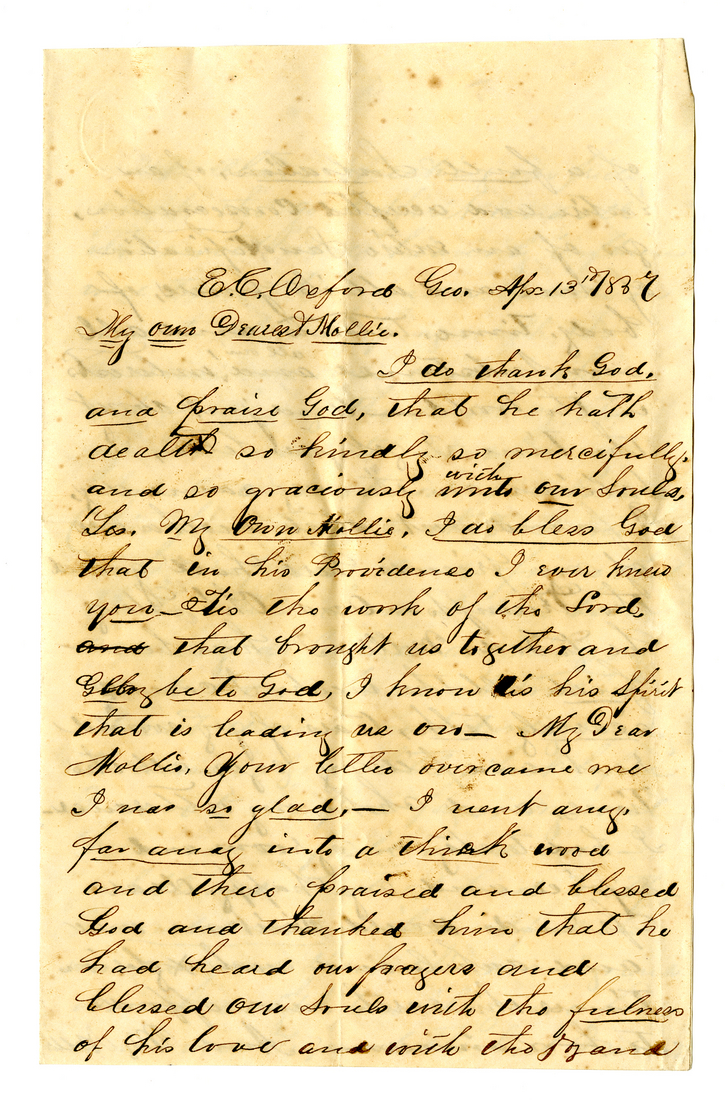 E.C. Oxford Geo. Apr 13th/1857
My own Dearest Mollie.
I do thank God,
and praise God, that he hath
dealt so kindly so mercifully
and so graciously with unto our Souls,
Yes. My Own Mollie, I do bless God
that in his Providence I ever knew
you — Tis the work of the Lord,
and that brought us together and
Glory be to God, I know tis his Spirit
that is leading us on — My Dear
Mollie, Your letter overcame me
I was so glad, — I went away,
far away into a thick wood
and there praised and blessed
God and thanked him that he
had heard our prayers and
blessed our Souls with the fulness
of his love and with the